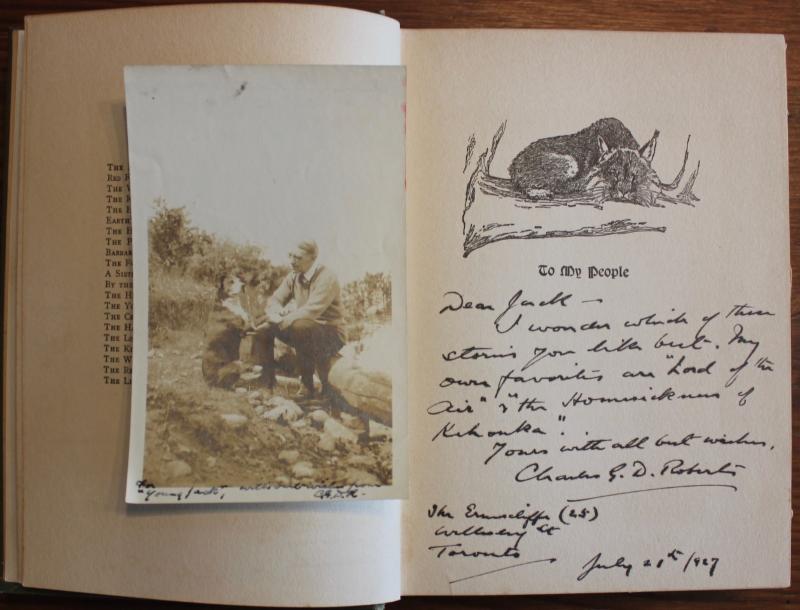 THE
RED F
THE W
THE K
THE E
EARTH
THE H
THE P
BARBAR
THE FO
A SISTE
BY THE
THE H
THE YO
THE CR
THE HA
THE LE
THE KI
THE W
THE RE
THE L
for
"Young Jack", with best wishes from
C.G.D.R.
To My People
Dear Jack –
I wonder which of these
stories you like best. My
own favorites are "Lord of the
Air" & "the Homesickness of
Kehonka".
Yours with all best wishes,
Charles G. D. Roberts
The Ernscliffe (25)
Wellesley St
Toronto
July 28th/1927